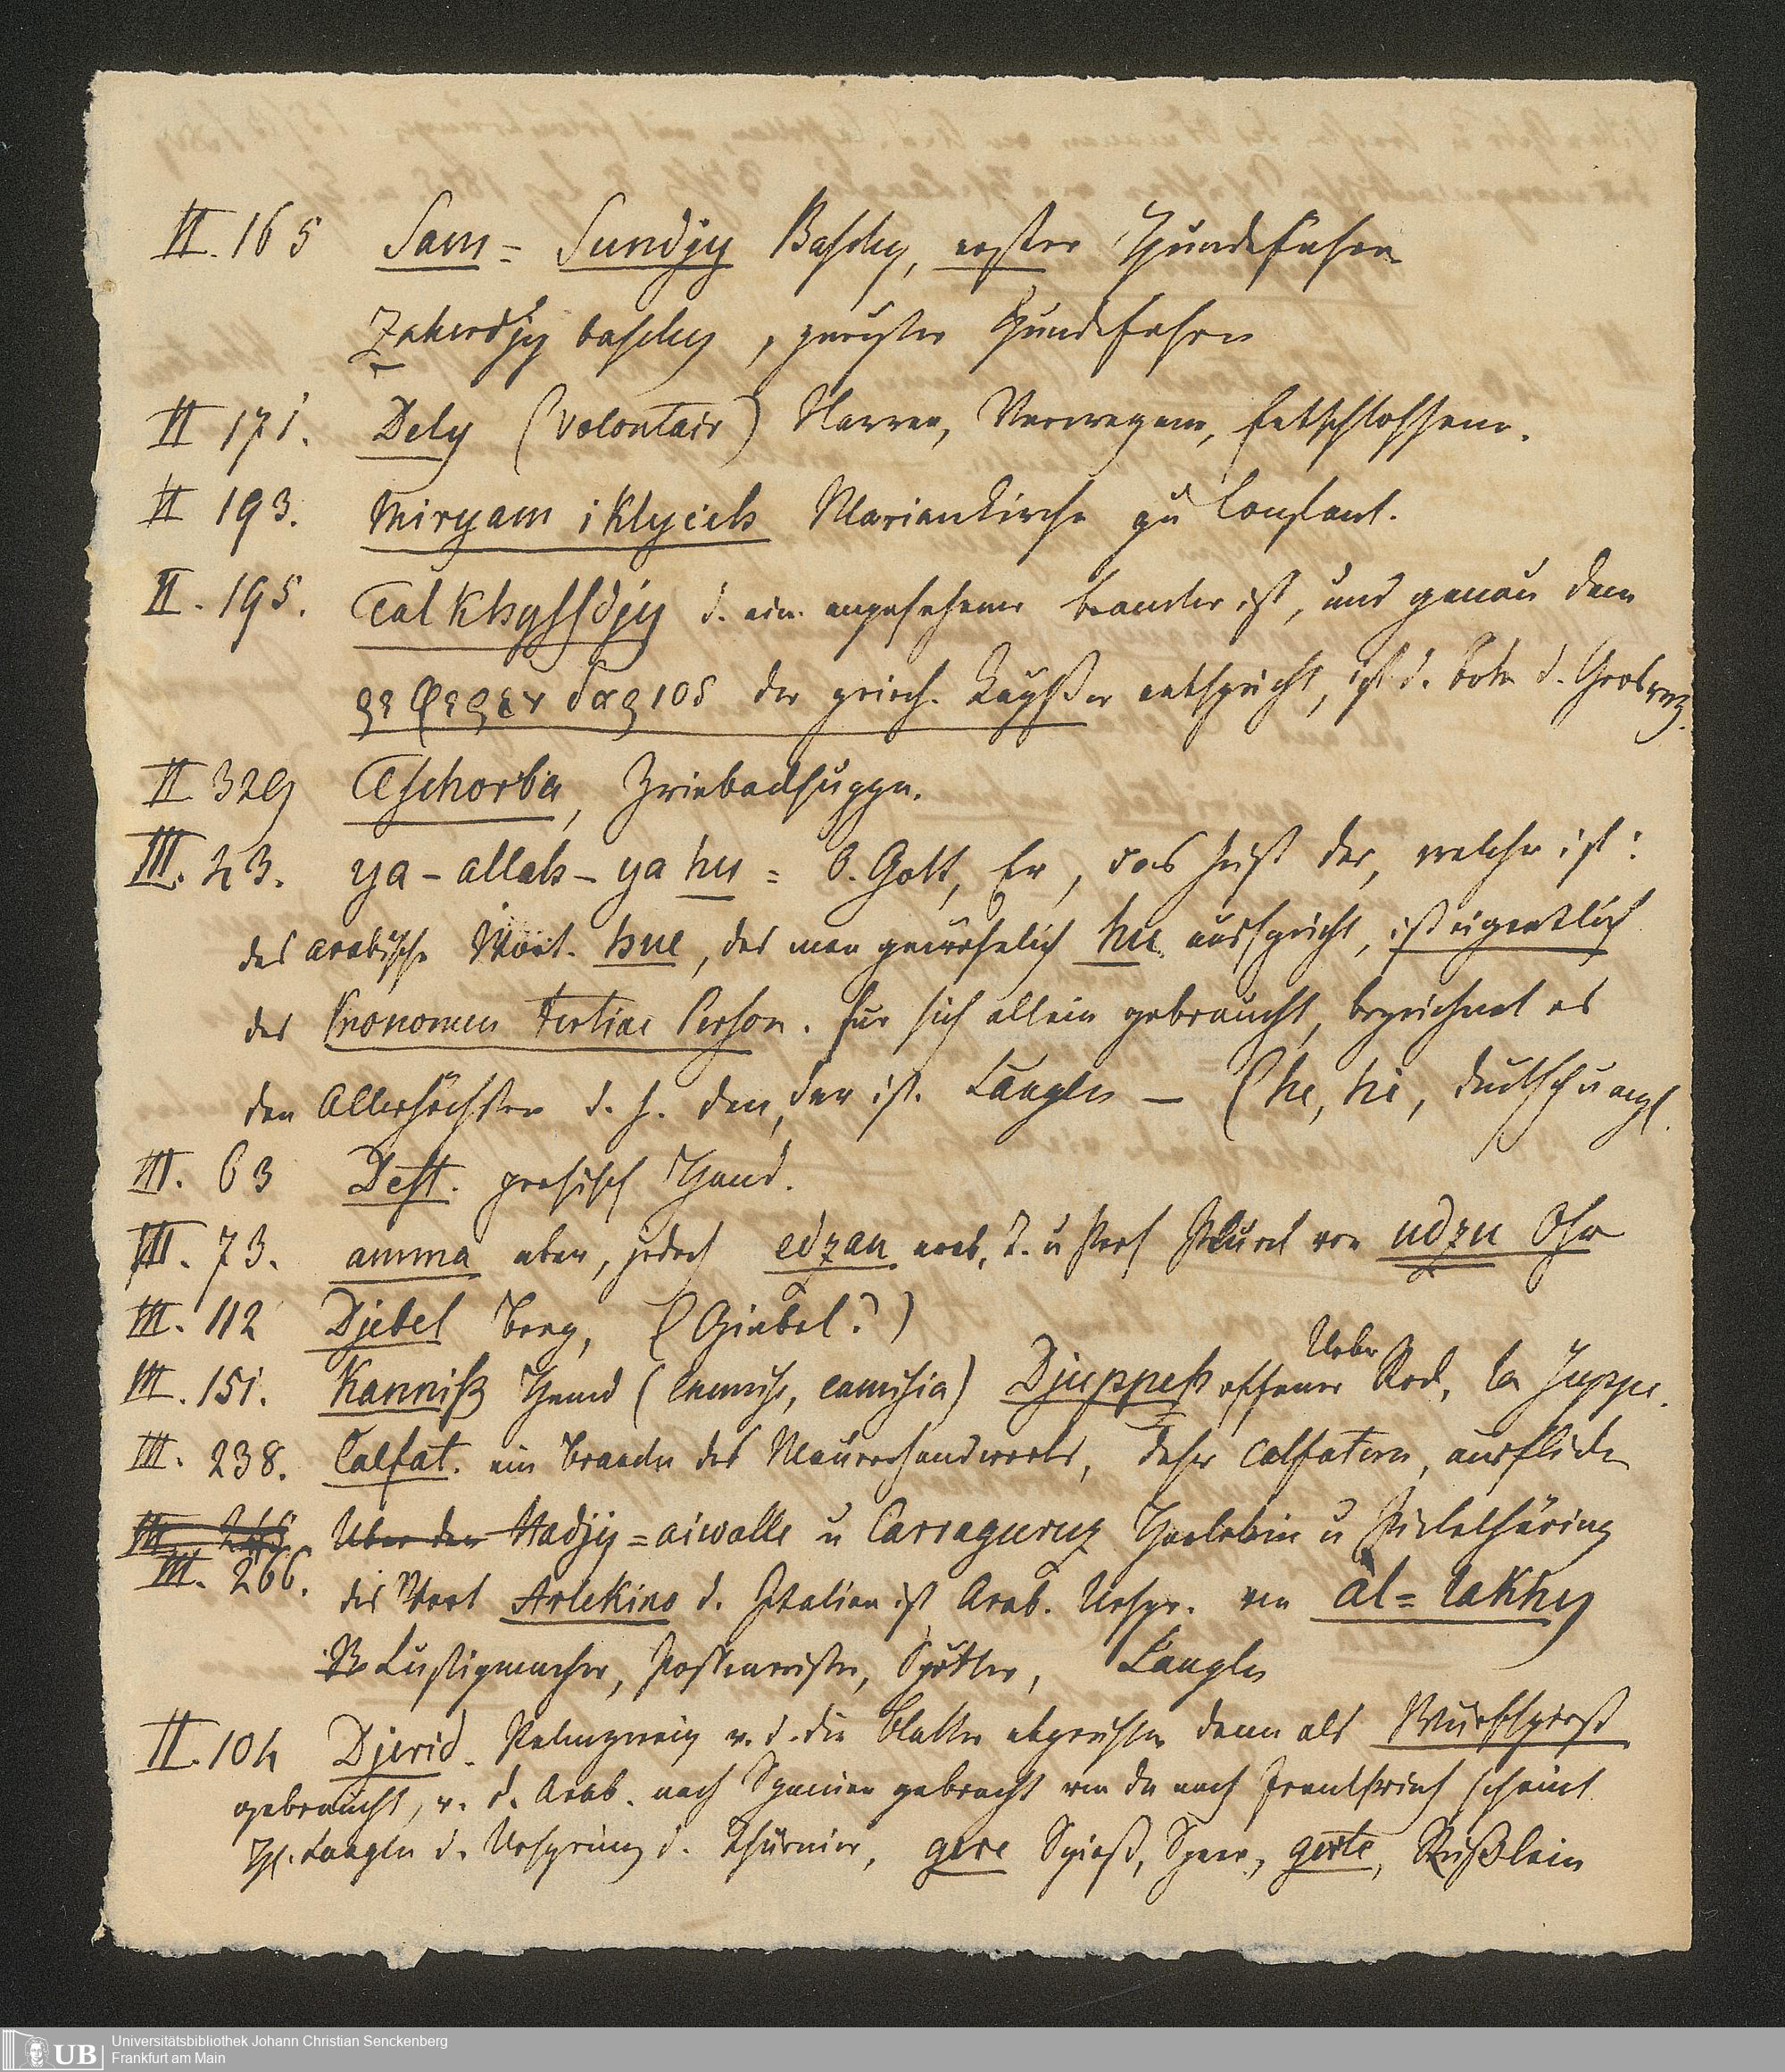 II. 165 Sam = Sundjy Baschy, erster Hundeführer
Zaherdjy baschy, zweiter Hundeführer
II 171. Dely (Volontair) Narren, Verwegene, Entschlossene.
II 193. Miryam i Klycieh Marienkirche zu Constant.
II. 195. Talkhyssdjy d. ein angesehener Beamter ist, und genau dem
ρεφερενδαριος der griech. Kayßer entspricht, ist d. Bote d. Groswez.
II 329 Tschorba, Zwiebacksuppe.
III. 23. ya - allah - ya hu = O. Gott, Er, das heist der, welcher ist:
das arabische Wort. hue, das man gewöhnlich hu ausspricht, ist eigentlich
das Pronomen tertiae Person. für sich allein gebraucht, bezeichnet es
den Allerhöchsten d. h. den, der ist. Langles — (he, hi, deutsch u engl.
III. 63 Dest. persisch Hand.
III. 73. amma aber, jedoch edzan arab. T. u Pers Plural von udzn Ohr
III. 112 Djebel Berg, (Giebel?)
III. 151. Kamiß Hemd (chemise, camisia) Djuppeh offener Rock, la Juppe.
Ueber
III. 238. Calfat. ein Beamter des Maurerhandwerks, daher calfatern, ausflicken
III 265. Ueber den Hadjy = aiwalle u Carraguruz Harlekin u Pickelhäring
III. 266. das Wort Arlekino d. Italien ist Arab. Urspr. von al = lakhy
Lustigmacher, Possenreisser, Spötter, Langles
II. 104 Djerid. Palmzweig v. d. die Blätter abgerissen dann als Wurfspiess
gebraucht, v. d. Arab. nach Spanien gebracht von da nach Frankreich scheint
H. Langles d. Ursprung d. Thurnier, gere Spieß, Speer, gerte,
Universitätsbibliothek Johann Christian Senckenberg
Frankfurt am Main
UB